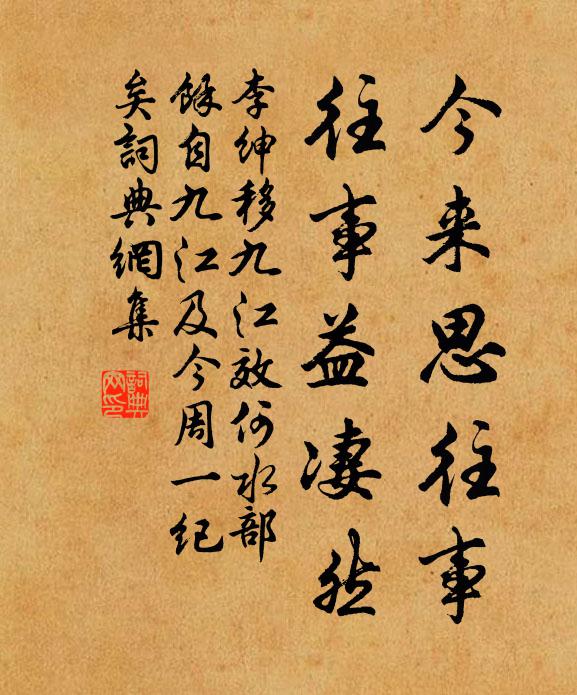 今来思往事
往事益凄然
李绅移九江效何水部
餘自九江及今周一纪
矣詞典網集
詞典
网印